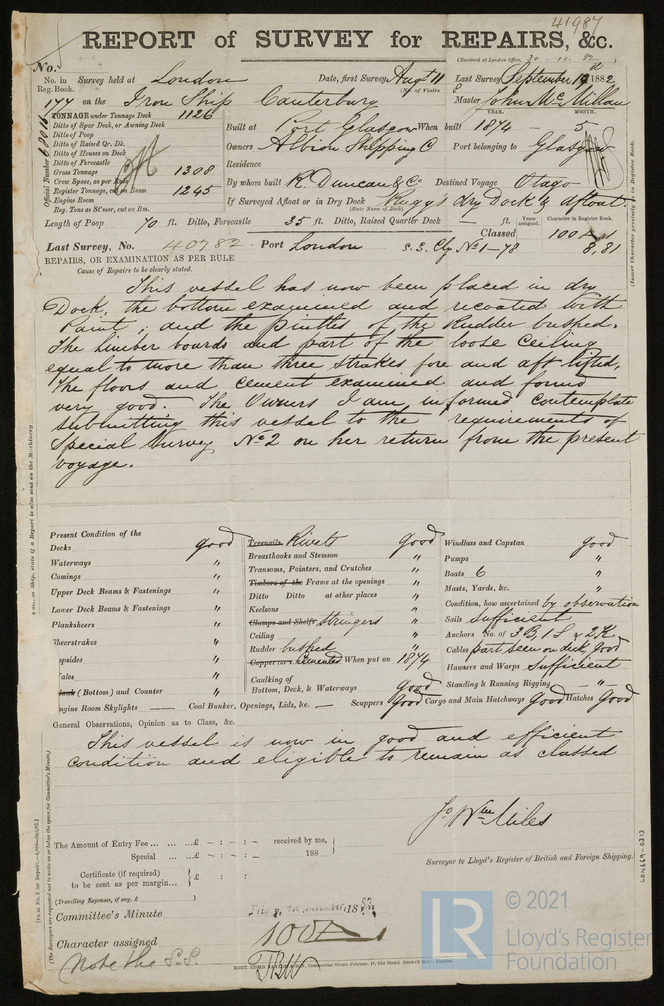 41987
REPORT of SURVEY for REPAIRS, &c.
(Received at London Office, 30 . 11 . 82
No.
No. in Reg. Book. Survey held at London Date, first Survey Aug 11 Last Survey September 19 1882
(No. of Visits 8
177 on the Iron Ship Canterbury Master John McMillan
TONNAGE under Tonnage Deck 1126
Ditto of Spar Deck, or Awning Deck
Ditto of Poop
Ditto of Raised Qr. Dk.
Ditto of Houses on Deck
Ditto of Forecastle
Gross Tonnage 1308
Crew Space, as per Rule
Register Tonnage, cut on Beam 1245
Engine Room
Reg. Tons as St'mer, cut on Bm.
Official Number
YEAR. MONTH.
Built at Port Glasgow When built 1874 - 5
Owners Albion Shipping Co Port belonging to Glasgow
Residence
By whom built R. Duncan & Co Destined Voyage Otago
If Surveyed Afloat or in Dry Dock Rugg's dry Dock & afloat.
(State Name of Dock)
Length of Poop 70 ft. Ditto, Forecastle 35 ft. Ditto, Raised Quarter Deck - ft.
Years assigned. Character in Register Book.
Last Survey, No. 40782 Port London S.S. Cly No 1-78 Classed 100 A 1
8,81
(Insert Character precisely as in Register Book.
REPAIRS, OR EXAMINATION AS PER RULE
Cause of Repairs to be clearly stated.
This vessel has now been placed in dry
Dock, the bottom examined and recoated with
Paint, and the pintles of the Rudder bushed.
The limber boards and part of the loose ceiling
equal to more than three strakes fore and aft lifted,
The floors and cement examined and found
very good. The Owners I am informed contemplate
submitting this vessel to the requirements of
Special Survey No 2 on her return from the present
voyage.
Ship, state if a Report is also sent on the Machinery
Present Condition of the
Decks good
Waterways "
Comings "
Upper Deck Beams & Fastenings "
Lower Deck Beams & Fastenings "
Planksheers "
Wheelstrakes "
Topsides "
Wales "
Plank (Bottom) and Counter "
Treenails Rivets good
Breasthooks and Stemson "
Transoms, Pointers, and Crutches "
Timbers of the Frame at the openings "
Ditto Ditto at other places "
Keelsons "
Clamps and Shelfs stringers "
Ceiling "
Rudder bushed "
Copper cemented When put on 1874
Caulking of Bottom, Deck, & Waterways good
Windlass and Capstan good
Pumps "
Boats 6 "
Masts, Yards, &c. "
Condition, how ascertained by observation
Sails Sufficient
Anchors No. of 3 B, 1 S & 2 K
Cables part seen on deck, good
Hawsers and Warps Sufficient
Standing & Running Rigging - " -
Engine Room Skylights — Coal Bunker, Openings, Lids, &c. — Scuppers Good Cargo and Main Hatchways Good Hatches Good
General Observations, Opinion as to Class, &c.
This vessel is now in good and efficient
condition and eligible to remain as classed
Jo Wm Miles
Surveyor to Lloyd's Register of British and Foreign Shipping.
The Amount of Entry Fee ... £ - : - : - received by me,
Special ... £ - : - : - 188
Certificate (if required) to be sent as per margin... £ : :
(Travelling Expenses, if any, £ )
Committee's Minute 1st December, 1882
Character assigned 100 A 1
note the S.S.
(The Surveyors are requested not to write on or below the space for Committee's Minute.)
LON669-0313
LR
© 2021
Lloyd's Register
Foundation